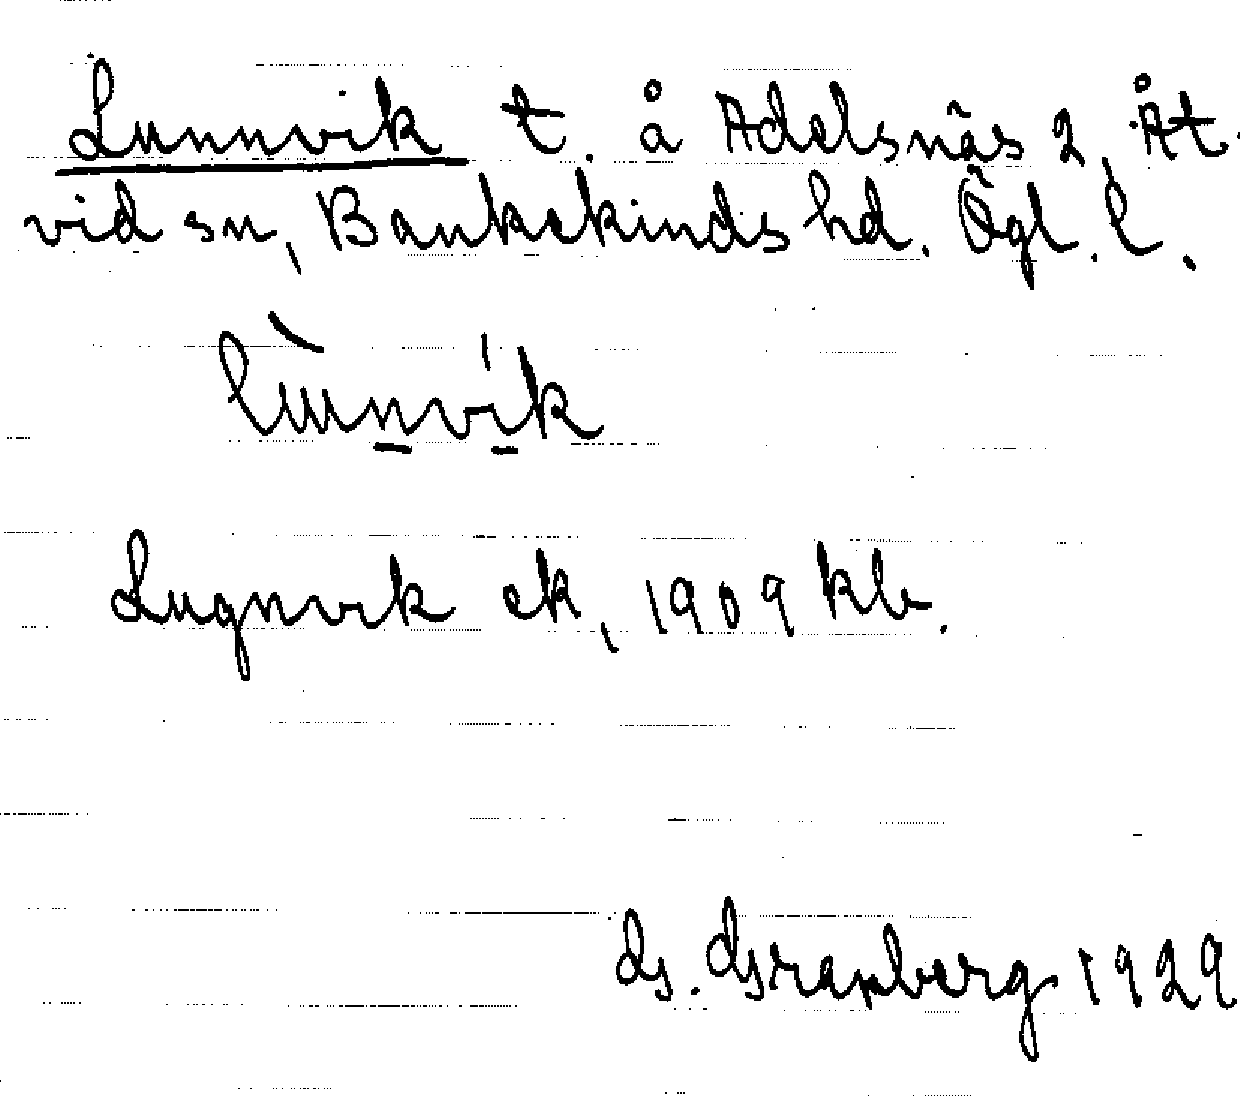 Lunnvik t. å Adelsnäs 2, Åt-
vid sn, Bankekinds hd. Ögl. l.
Lugnvik ek, 1909 klb.
1929